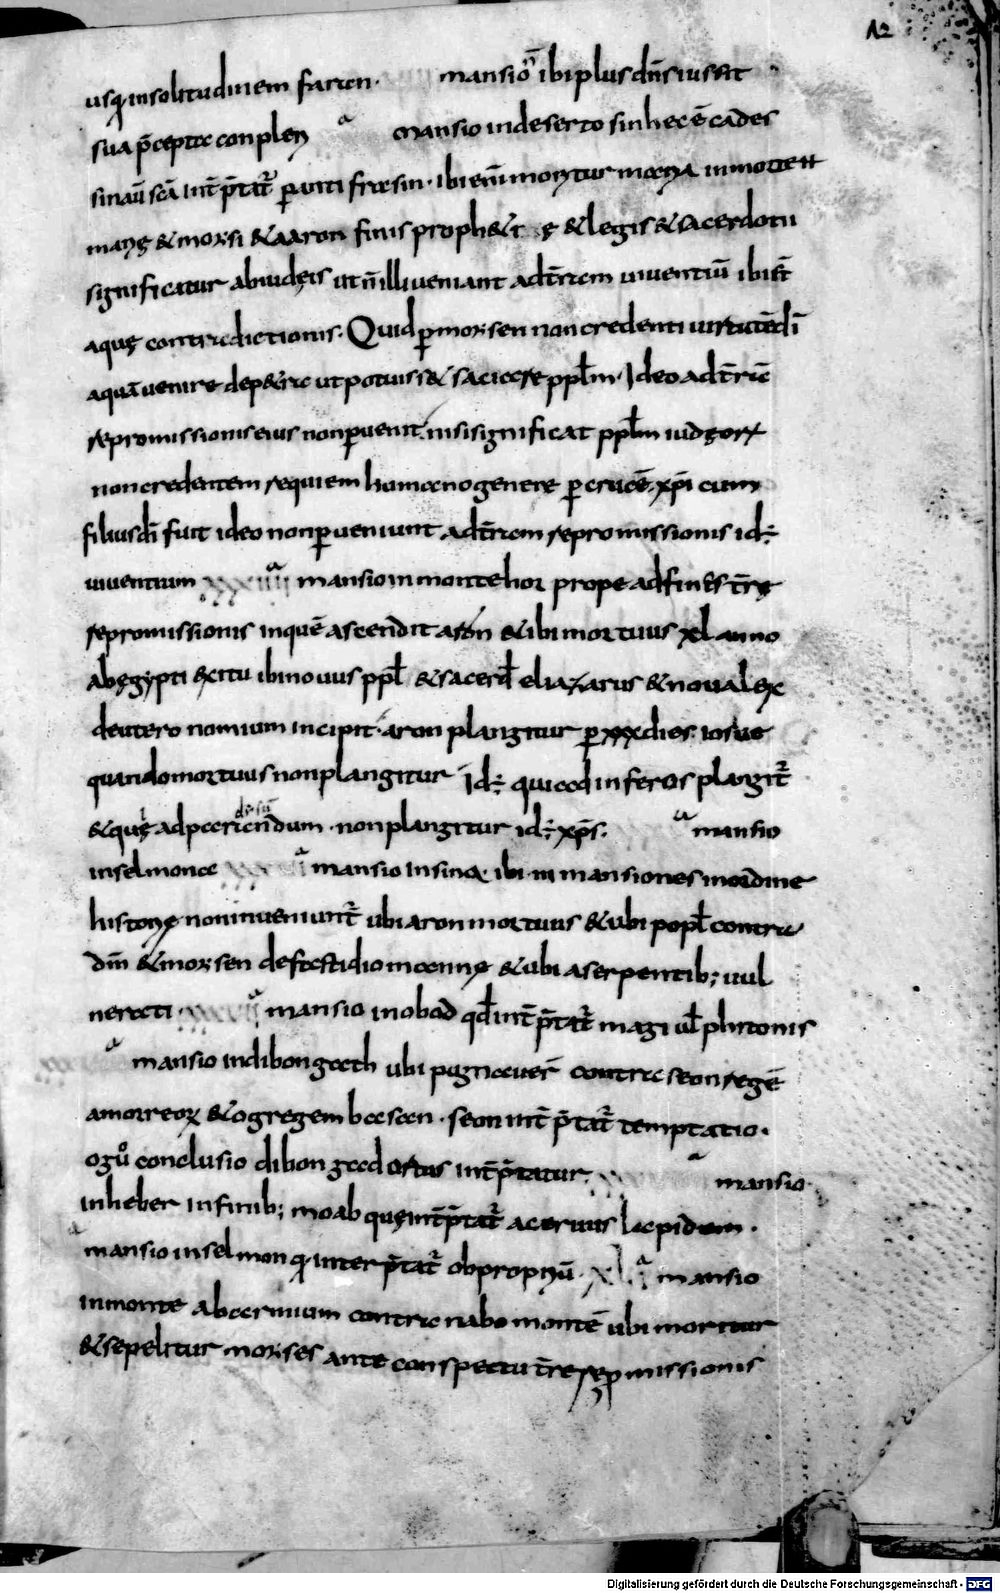 12
usq; insolitudinem faran· mansio ibi plus dn̄s iussit
sua p̄cepta conplen
mansio indeserto sin hec ē cades
sinaū scā int̄p̄tat̄ frasin· ibi enī moritur maria in morte
et moẏsi & aaron finis proph& & legis & sacerdotii
significatur abiudęis ut n̄ illi ueniant adt̄ram uiuentiū ibi st̄
aquę contradictionis· Quid p̄ moẏsen non credenti uirtutē dī
aquā uenire depetra ut potuiss& saciare ppl̄m· Ideo adt̄rā
repromissionis eius non p̄uenit· nisi significat ppl̄m iudęorꝝ
non credentem requiem humano genere p̄ crucē xp̄i cum
filius dī fuit ideo non p̄ueniunt adt̄ram repromissionis id÷
uiuentium xxxiiii a mansio in monte hor prope ad fines t̄rę
repromissionis inquē ascendit aron & ibi mortuus xl anno
ab ęgypti exitu ibi nouus ppl̄ & sacerd̄ eliazarus & noua lex
deutero nomium incipit· aron plangitur p̄ xxx dies iosue
quando mortuus non plangitur Id÷ qui ad inferos plangit̄
& quę ad paradisū endum· non plangitur id÷ xp̄s· a mansio
in selmona a mansio in sina· ibi· iii mansiones in ordine
historię non inueniunt̄ ubi aron mortuus & ubi popl̄ contra
dm̄ & moẏsen defastidio mannę & ubi a serpentib; uul
nerati· xxxvii a mansio in obod qd̄ int̄p̄tat̄ magi ul̄ phitonis
a mansio in dibongath ubi pugnauer̄ contra seon regē
amorreoꝝ & og regem basan· seon int̄p̄tat̄ temptatio·
og ů conclusio dibon gad ortus int̄p̄tatur a mansio
in heber in finib; moab quę int̄p̄tat̄ aceruus lapidum·
a mansio in selmon q· interp̄tat̄ obpropriū· xli a mansio
in monte abarmium contra nabo montē ubi moritur
& sepelitur moẏses ante conspectu t̄re rep̄missionis
Digitalisierung gefördert durch die Deutsche Forschungsgemeinschaft - DFG